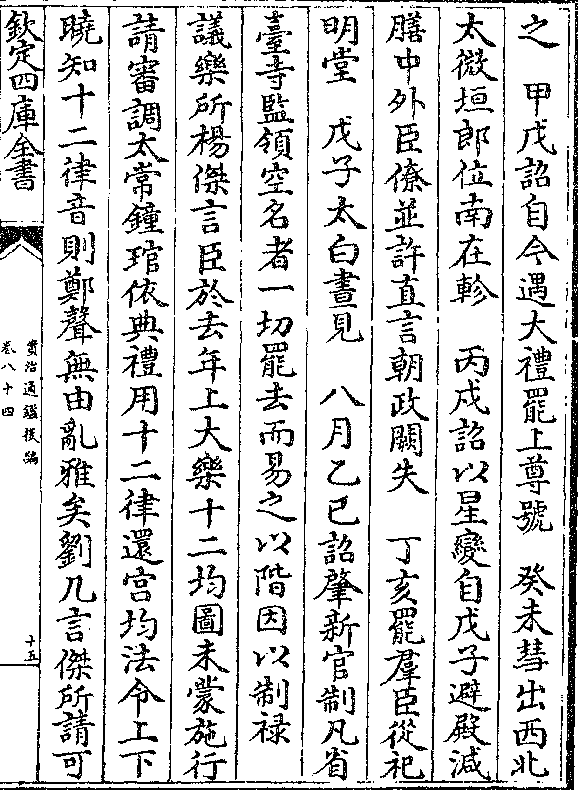 之　甲戌詔自今遇大禮罷上尊號　癸未彗出西北
太微垣郎位南在軫　丙戌詔以星變自戊子避殿減
膳中外臣僚並許直言朝政闕失　丁亥罷羣臣從祀
明堂　戊子太白晝見　八月乙巳詔肇新官制凡省
臺寺監領空名者一切罷去而易之以階因以制禄
議樂所楊傑言臣於去年上大樂十二均圖未蒙施行
請審調太常鐘琯依典禮用十二律還宮均法令上下
曉知十二律音則鄭聲無由亂雅矣劉几言傑所請可
欽定四庫全書
資治通鑑後編
卷八十四
十五